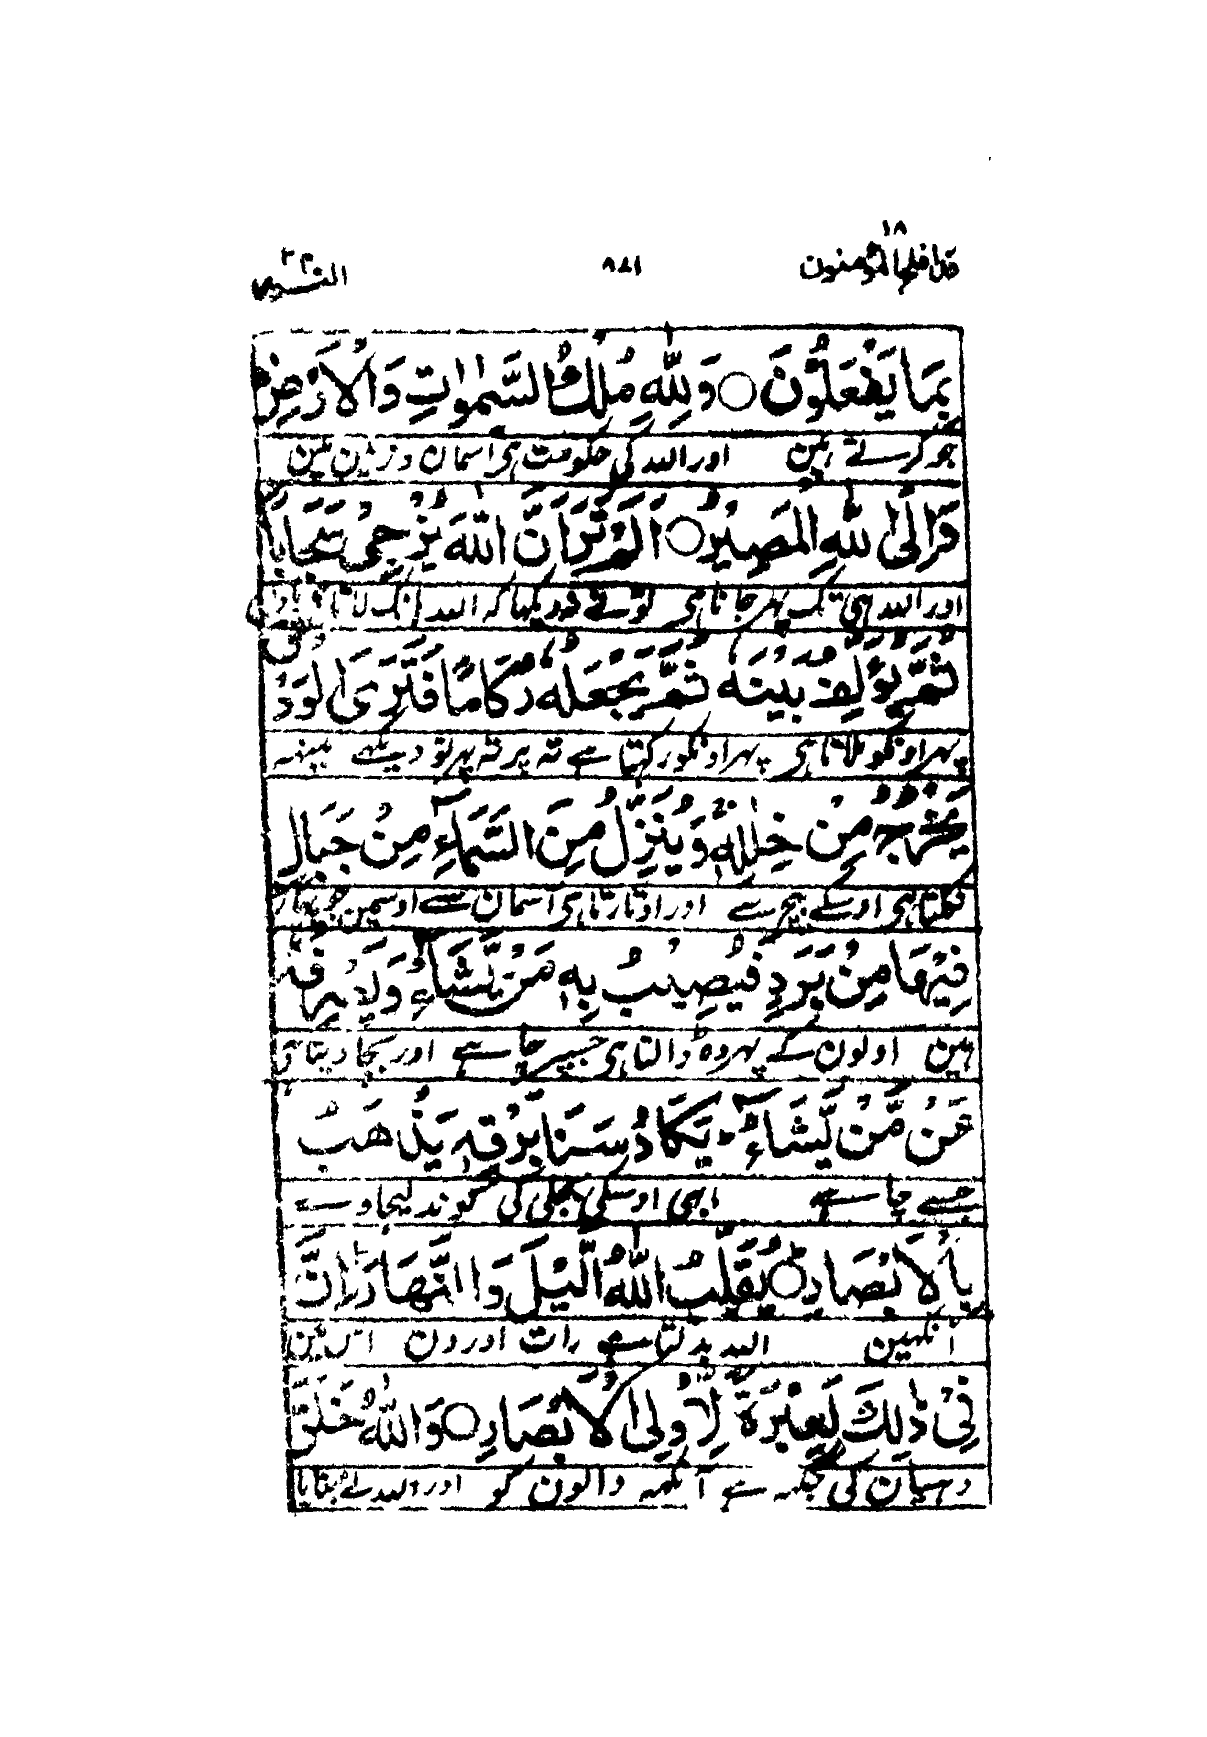 ۱۸
قد افلح المؤمنون
۸۸۱
النور ۲۴
بِمَا يَفْعَلُوْنَ ○ وَلِلّٰهِ مُلْكُ السَّمٰوٰتِ وَالْاَرْضِ
جو کرتے ہین اور اللہ کی حکومت ہی آسمان و زمین مین
وَاِلَى اللّٰهِ الْمَصِيْرُ ○ اَلَمْ تَرَ اَنَّ اللّٰهَ يُزْجِيْ سَحَابًا
اور اللہ ہی تک پھر جانا ہی تونے نہ دیکھا کہ اللہ ہانک لاتا
ثُمَّ يُؤَلِّفُ بَيْنَهٗ ثُمَّ يَجْعَلُهٗ رُكَامًا فَتَرَى الْوَدْ
پھر اونکو ملاتا ہی پھر اونکو رکھتا ہے تہ پر تہ پھر تو دیکھے مینہ
يَخْرُجُ مِنْ خِلٰلِهٖ وَيُنَزِّلُ مِنَ السَّمَآءِ مِنْ جِبَالٍ
نکلتا ہی اوسکے بیچ سے اور اوتارتا ہی آسمان سے اوسمین جو پہاڑ
فِيْهَا مِنْۢ بَرَدٍ فَيُصِيْبُ بِهٖ مَنْ يَّشَآءُ وَيَصْرِفُهٗ
ہین اولون کے پھر وہ ڈالتا ہی جسپر چاہے اور بچا دیتا ہی
عَنْ مَّنْ يَّشَآءُ ؕ يَكَادُ سَنَا بَرْقِهٖ يَذْهَبُ
جسے چاہے ابھی اوسکی بجلی کی کوند لیجاوے
بِالْاَبْصَارِ ○ يُقَلِّبُ اللّٰهُ الَّيْلَ وَالنَّهَارَ ؕ اِنَّ
آنکھین اللہ بدلتا ہے رات اور دن اس مین
فِيْ ذٰلِكَ لَعِبْرَةً لِّاُولِى الْاَبْصَارِ ○ وَاللّٰهُ خَلَقَ
دھیان کی جگہ ہے آنکھہ والون کو اور اللہ نے بنایا